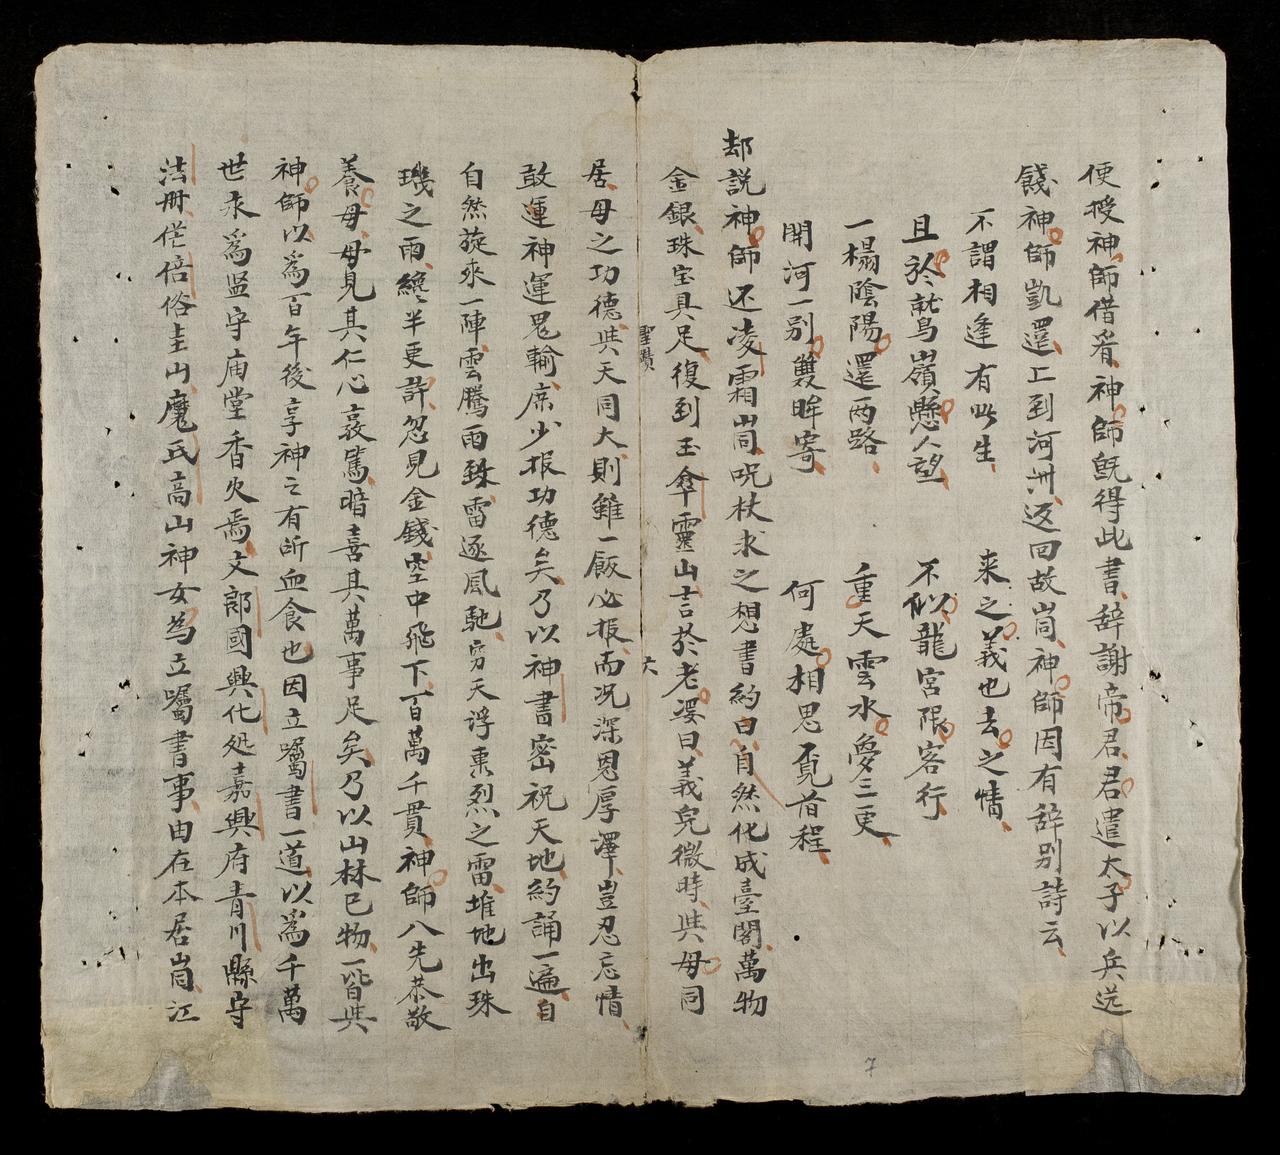 便授神師借看神師旣得此書辞謝帝君君遣太子以兵送
餞神師凱還上到河洲返回故峝神師因有辞别詩云
不謂相逢有此生 来之義也去之情
且於就鳥嶺懸人望 不似龍宮限客行
一榻陰陽還两路 重天雲水夢三更
開河一别雙眸寄 何處相思覔首程
却説神師还凌霜峝呪杖求之想書約曰自然化成臺閣萬物
金銀珠宝具足復到玉傘靈山言於老婆曰義兒微時與母同
聖蹟 六
居母之功德與天同大則雖一飯必报而况深恩厚澤豈忍忘情
敢運神運鬼輸庶少报功德矣乃以神書密祝天地約誦一遍自
自然旋來一陣雲騰雨致雷逐風馳穷天浮熏烈之雷堆地出珠
璣之雨纔半更許忽見金錢空中飛下百萬千貫神師八先恭敬
養母母見其仁心哀篤暗喜其萬事足矣乃以山林己物一皆與
神師以為百年後享神之有所血食也因立囑書一道以為千萬
世永為监守庙堂香火焉文郎國興化処嘉興府青川縣守
法册俇偣俗圭山魔氏高山神女為立囑書事由在本居峝江
7